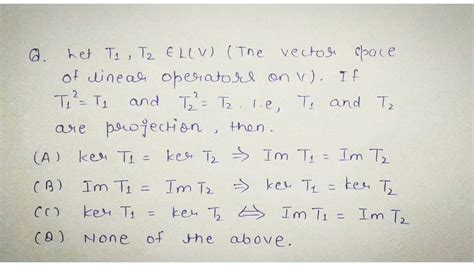 Q. Let T₁, T₂ ∈ L(V) (The vector space
of linear operators on V). If
T₁² = T₁ and T₂² = T₂. i.e, T₁ and T₂
are projection, then.
(A) ker T₁ = ker T₂ ⇒ Im T₁ = Im T₂
(B) Im T₁ = Im T₂ ⇒ ker T₁ = ker T₂
(C) ker T₁ = ker T₂ ⇔ Im T₁ = Im T₂
(D) None of the above.